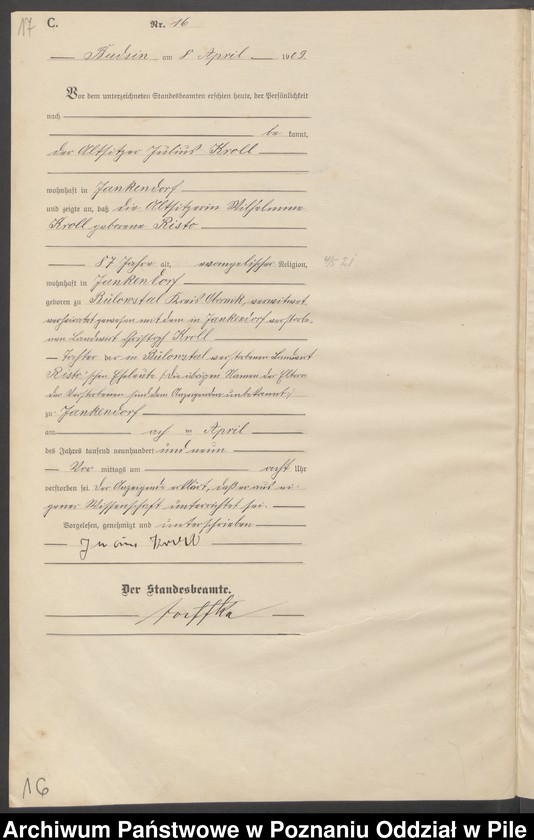 17 C. Nr. 16
Budsin am 8 April 1909.
Vor dem unterzeichneten Standesbeamten erschien heute, der Persönlichkeit
nach
be kannt,
der Altsitzer Julius Kroll
wohnhaft in Jankendorf
und zeigte an, daß die Altsitzerin Wilhelmine
Kroll geborene Risto
87 Jahre alt, evangelischer Religion,
wohnhaft in Jankendorf
geboren zu Bülowstal Kreis Obornik, verwitwet,
verheiratet gewesen mit dem in Jankendorf verstorbe-
nen Landwirt Christoph Kroll
Tochter der in Bülowstal verstorbenen Landwirt
Risto'schen Eheleute, (die übrigen Namen der Eltern
der Verstorbenen sind dem Anzeigenden unbekannt,)
zu Jankendorf
am acht en April
des Jahres tausend neunhundert und neun
Vor mittags um acht Uhr
verstorben sei. Der Anzeigende erklärt, daß er aus ei-
gener Wissenschaft unterrichtet sei.
Vorgelesen, genehmigt und unterschrieben
Julius Kroll
Der Standesbeamte.
16
Archiwum Państwowe w Poznaniu Oddział w Pile